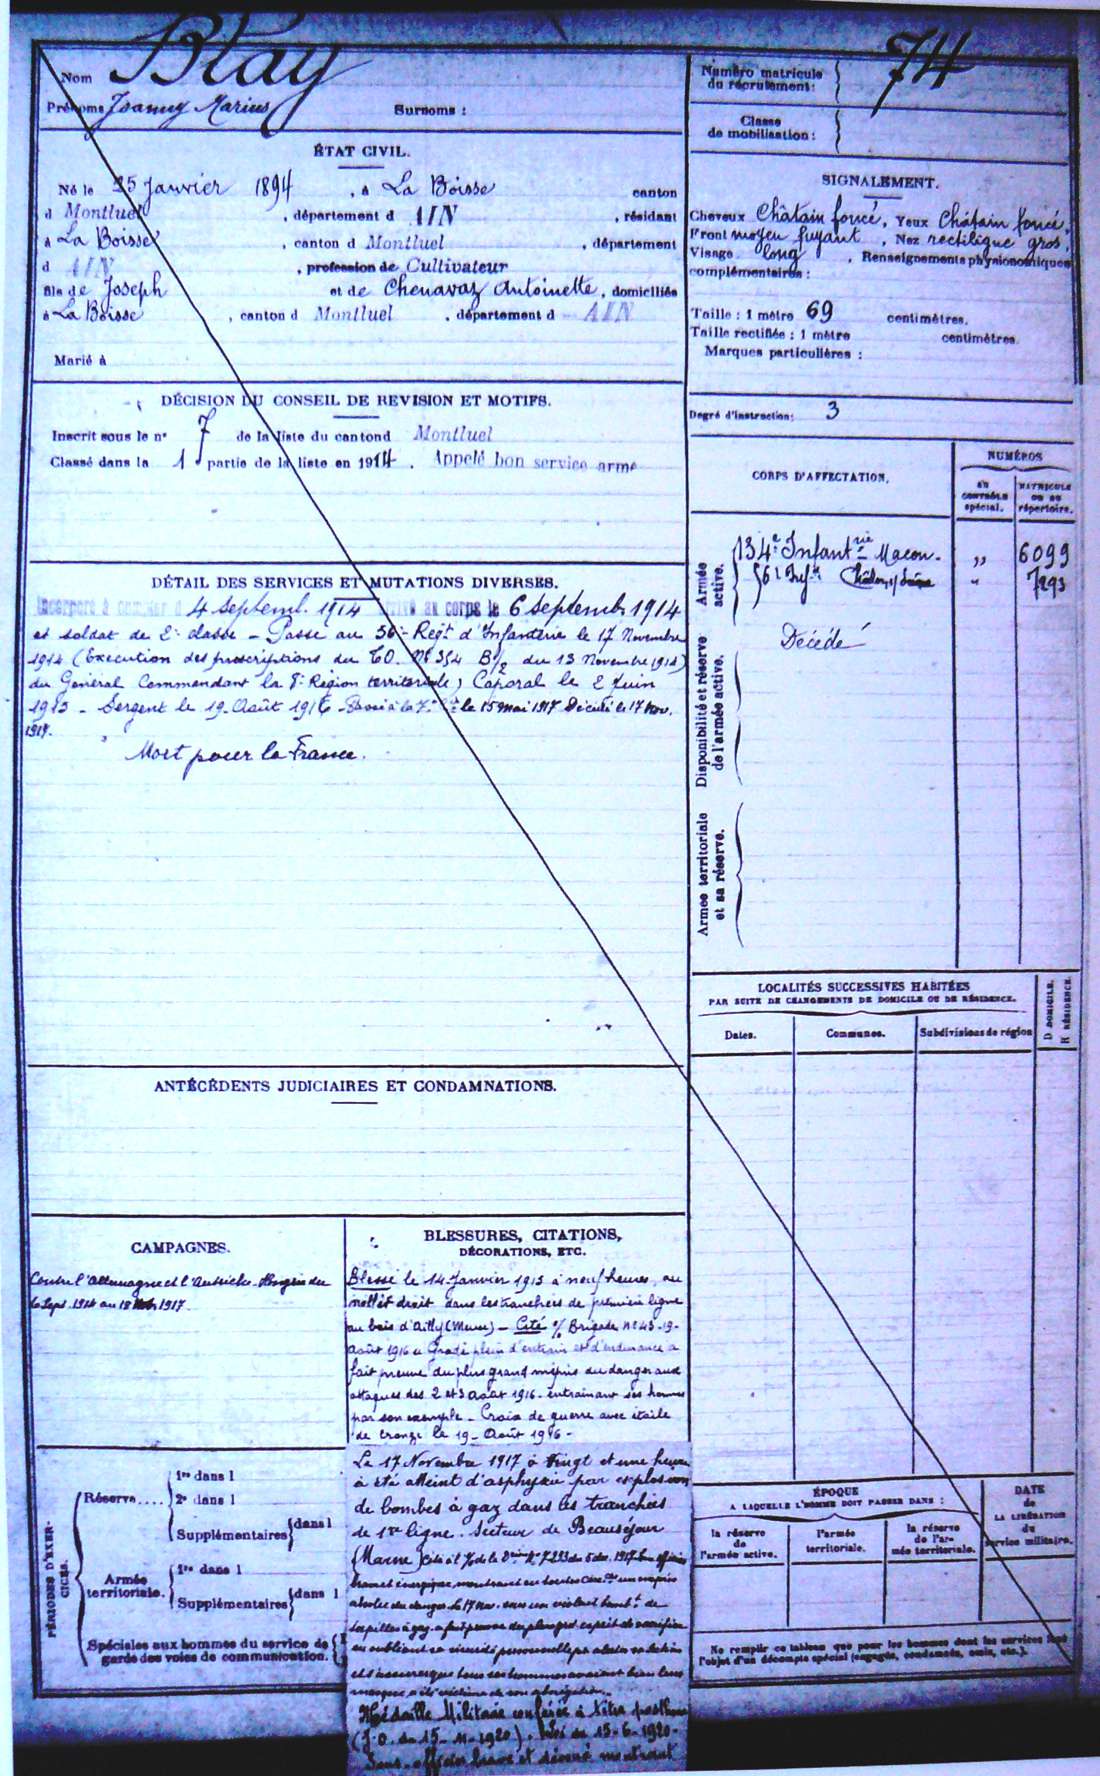 Nom Blay
Prénoms Joanny Marius Surnoms :
Numéro matricule du recrutement : 74
Classe de mobilisation :
ÉTAT CIVIL.
Né le 25 Janvier 1894, à La Boisse canton
d Montluel, département d AIN, résidant
à La Boisse, canton d Montluel, département
d AIN, profession de Cultivateur
fils de Joseph et de Chenavaz Antoinette, domiciliés
à La Boisse, canton d Montluel, département d AIN
Marié à
SIGNALEMENT.
Cheveux Châtain foncé, Yeux Châtain foncé,
Front moyen fuyant, Nez rectiligne gros,
Visage long, Renseignements physionomiques
complémentaires :
Taille : 1 mètre 69 centimètres.
Taille rectifiée : 1 mètre centimètres.
Marques particulières :
Degré d'instruction : 3
DÉCISION DU CONSEIL DE REVISION ET MOTIFS.
Inscrit sous le n° 7 de la liste du canton d Montluel
Classé dans la 1 partie de la liste en 1914. Appelé bon service armé
DÉTAIL DES SERVICES ET MUTATIONS DIVERSES.
Incorporé à compter d 4 septemb. 1914 arrivé au corps le 6 septembre 1914
et soldat de 2e classe - Passé au 56e Régt d'Infanterie le 17 Novembre
1914 (Exécution des prescriptions du C.O. No 354 B/2 du 13 Novembre 1914)
du Général Commandant la 8e Région territoriale) Caporal le 2 Juin
1915 - Sergent le 19 Août 1916 - Passé à la 7e Cie le 15 mai 1917 Décédé le 17 Nov.
1917.
Mort pour la France.
CORPS D'AFFECTATION.
NUMÉROS
au contrôle spécial.
matricule ou au répertoire.
Armée active.
134e Infantrie Macon - ,, 6099
56e Infie Châlon s/ Saône " 7293
Disponibilité et réserve de l'armée active.
Décédé
Armée territoriale et sa réserve.
LOCALITÉS SUCCESSIVES HABITÉES
PAR SUITE DE CHANGEMENTS DE DOMICILE OU DE RÉSIDENCE.
Dates. Communes. Subdivisions de région
D DOMICILE. R RÉSIDENCE.
ANTÉCÉDENTS JUDICIAIRES ET CONDAMNATIONS.
CAMPAGNES.
Contre l'Allemagne et l'Autriche-Hongrie du
6 Sept. 1914 au 18 Nov 1917.
BLESSURES, CITATIONS,
DÉCORATIONS, ETC.
Blessé le 14 Janvier 1915 à neuf heures, au
mollet droit dans les tranchées de première ligne
au bois d'Ailly (Meuse) - Cité O/ Brigade no 43 - 19 -
Août 1916 « Gradé plein d'entrain et d'endurance a
fait preuve du plus grand mépris du danger aux
attaques des 2 et 3 août 1916 - entrainant ses hommes
par son exemple - Croix de guerre avec étoile
de bronze le 19 - Août 1916 -
Le 17 Novembre 1917 à vingt et une heures
à été atteint d'asphyxie par explosion
de bombes à gaz dans les tranchées
de 1re ligne. Secteur de Beauséjour
(Marne) Cité à l'O/ de la Don No 7233 du 5 dec. 1917
brave et énergique, montrant en toutes un mépris
absolu du danger. Le 17 Nov. sous un violent bombt de
torpilles à gaz a fait preuve du plus grand esprit de sacrifice
en oubliant sa sécurité personnelle
et s'assurer que tous ses hommes avaient bien leurs
masques a été victime de son abnégation.
Médaille Militaire conférée à titre posthume
(J.O. du 15-11-1920). Loi du 15-6-1920 -
Sous-officier brave et dévoué montrant
PÉRIODES D'EXERCICES.
Réserve....
1re dans l
2e dans l
Supplémentaires dans l
Armée territoriale.
1re dans l
Supplémentaires dans l
Spéciales aux hommes du service de garde des voies de communication.
ÉPOQUE
A LAQUELLE L'HOMME DOIT PASSER DANS :
la réserve de l'armée active.
l'armée territoriale.
la réserve de l'armée territoriale.
DATE de LA LIBÉRATION du service militaire.
Ne remplir ce tableau que pour les hommes dont les services font
l'objet d'un décompte spécial (engagés, condamnés, omis, etc.).